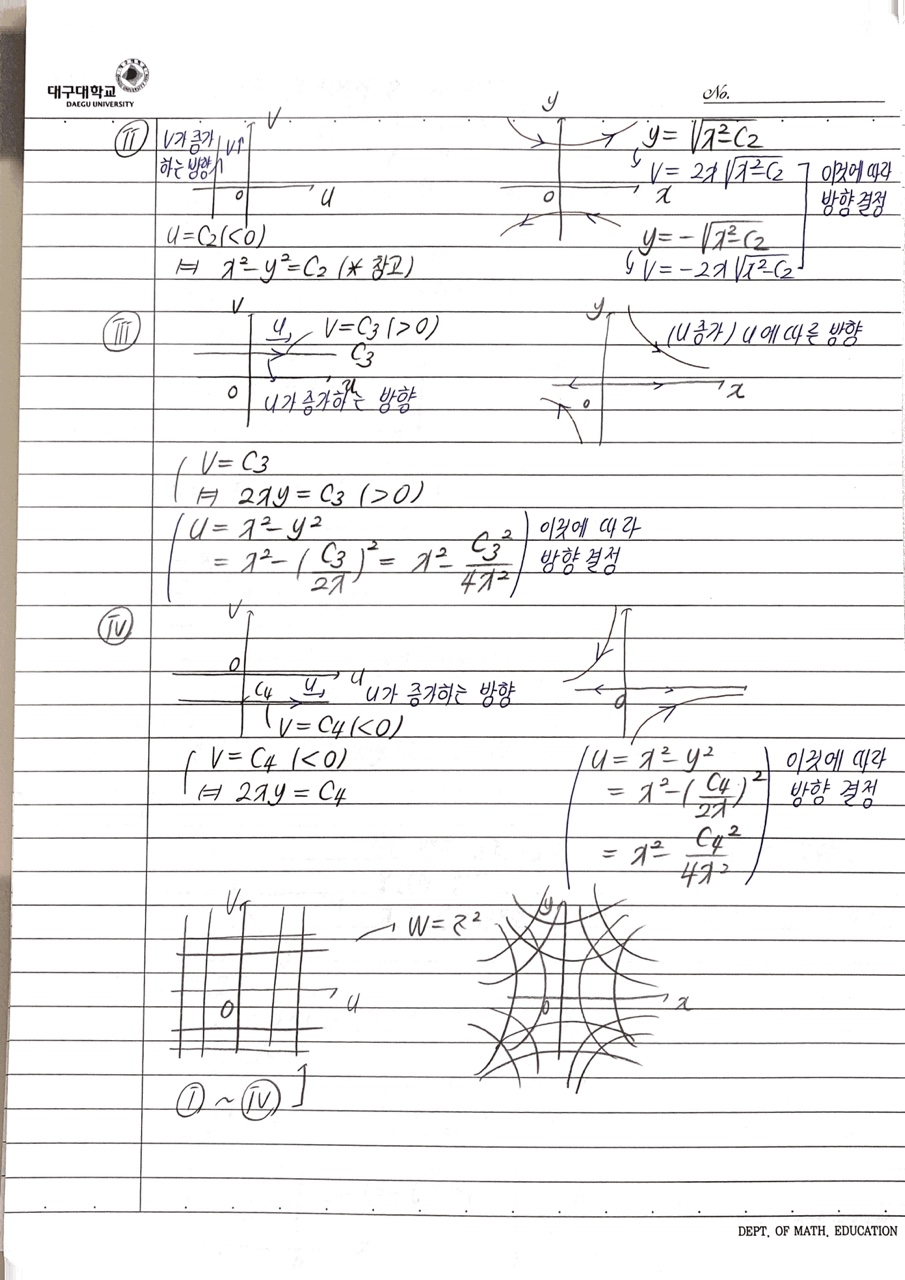 대구대학교
DAEGU UNIVERSITY
No.
ⅱ
V가 증가
하는 방향
V↑
V
u
0
u = C₂(<0)
⇔ x²-y²=C₂ (* 참고)
y
x
0
y = √x²-C₂
V = 2x√x²-C₂
y = -√x²-C₂
V = -2x√x²-C₂
이것에 따라
방향 결정
ⅲ
V
u
V = C₃ (>0)
C₃
0
u
u가 증가하는 방향
y
(u 증가) u에 따른 방향
x
0
V = C₃
⇔ 2xy = C₃ (>0)
u = x²-y²
= x²-(C₃/2x)² = x²-C₃²/4x²
이것에 따라
방향 결정
ⅳ
V
0
u
C₄
u
u가 증가하는 방향
V = C₄(<0)
0
V = C₄ (<0)
⇔ 2xy = C₄
u = x²-y²
= x²-(C₄/2x)²
= x²-C₄²/4x²
이것에 따라
방향 결정
V
0
u
W = z²
y
0
x
ⅰ ~ ⅳ
DEPT. OF MATH. EDUCATION